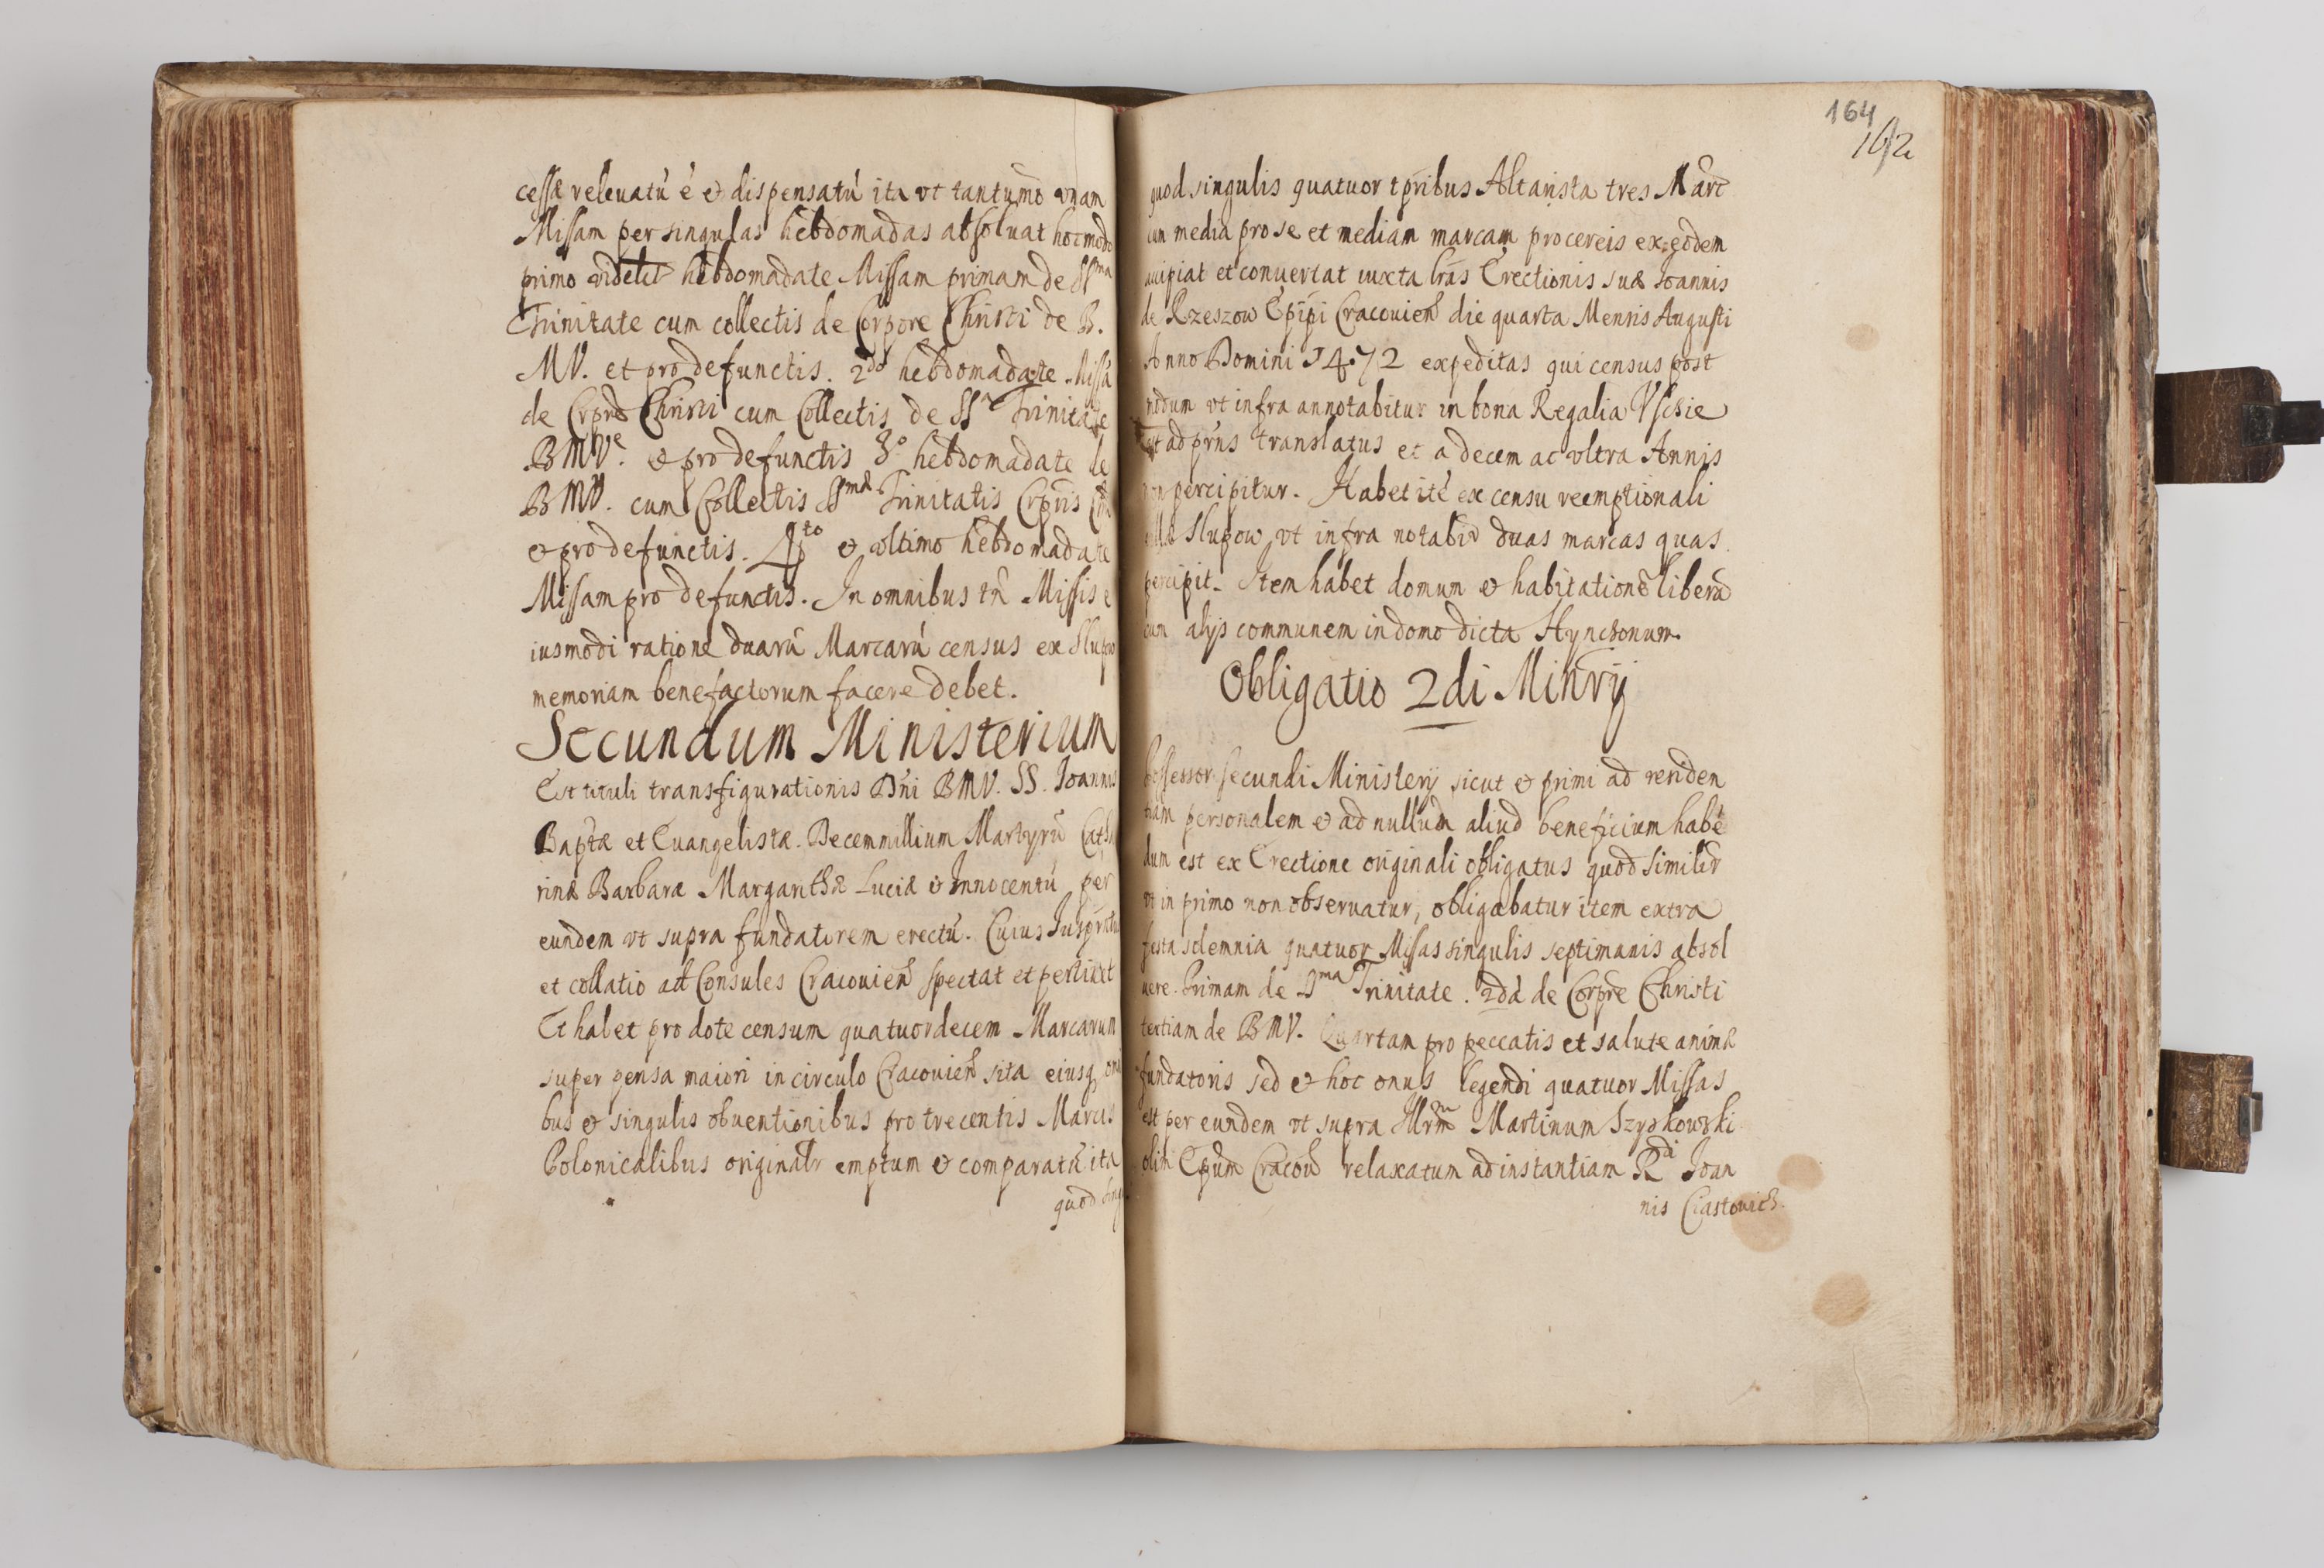 cessæ releuatũ é & dispensatũ ita vt tantumõ vnam
Missam per singulas hebdomadas absoluat hoc modo
primo videlɫ hebdomadate Missam primam de SSma
Trinitate cum collectis de Corpore Christi de B.
MV. et pro defunctis. 2dó hebdomadate Missã
de Corprẽ Christi cum Collectis de SSa Trinitate
BMVe. & pro defunctis 3o hebdomadate de
BMV. cum Collectis SSmæ Trinitatis Crpris
& pro defunctis. 4to & vltimo hebdomadate
Missam pro defunctis. In omnibus tñ Missis e
iusmodi ratione duarũ Marcarũ census ex Slupow
memoriam benefactorum facere debet.
Secundum Ministerium
Est tituli transfigurationis Dñi BMV. SS. Joannis
Baptæ et Euangelistæ. Decemmillium Martyrũ Catha
rinæ Barbaræ Margarithæ Luciæ & Innocentũ per
eundem vt supra fundatorem erectũ. Cuius Juspr̃tus
et collatio ad Consules Cracouieñ spectat et pertinet
Et habet pro dote censum quatuordecem Marcarum
super pensa maiori in circulo Cracouieñ sita eiusq
bus & singulis obuentionibus pro trecentis Marcis
Polonicalibus originalr emptum & comparatũ ita
quod sing
164
162
quod singulis quatuor tpribus Altarista tres Marc
cum media pro se et mediam marcam pro cereis ex eodem
accipiat et conuertat iuxta lrãs Erectionis suæ Joannis
de Rzeszow Epĩpi Cracouieñ die quarta Mensis Augusti
Anno Domini 1472 expeditas qui census post
modum vt infra annotabitur in bona Regalia Vscie
est ad prñs translatus et a decem ac vltra Annis
non percipitur. Habet itẽ ex censu reemptionali
Slupow vt infra notabir duas marcas quas
percipit. Item habet domum & habitationẽ liberã
cum alijs communem in domo dicta Hynczonum.
Obligatio 2di Minrij
Possessor secundi Ministerij sicut & primi ad residen
tiam personalem & ad nullum aliud beneficium habẽ
dum est ex Erectione originali obligatus quod similir
vt in primo non obseruatur, obligabatur item extra
festa solemnia quatuor Missas singulis septimanis absol
uere. Primam de SSma Trinitate. 2dá de Corprẽ Christi
tertiam de BMV. Quartam pro peccatis et salute animæ
fundatoris sed & hoc onus legendi quatuor Missas
est per eundem vt supra Illrm̃ Martinum Szyszkowski
olim Epum Cracou relaxatum ad instantiam Rdi Joan
nis Ciastowicz.